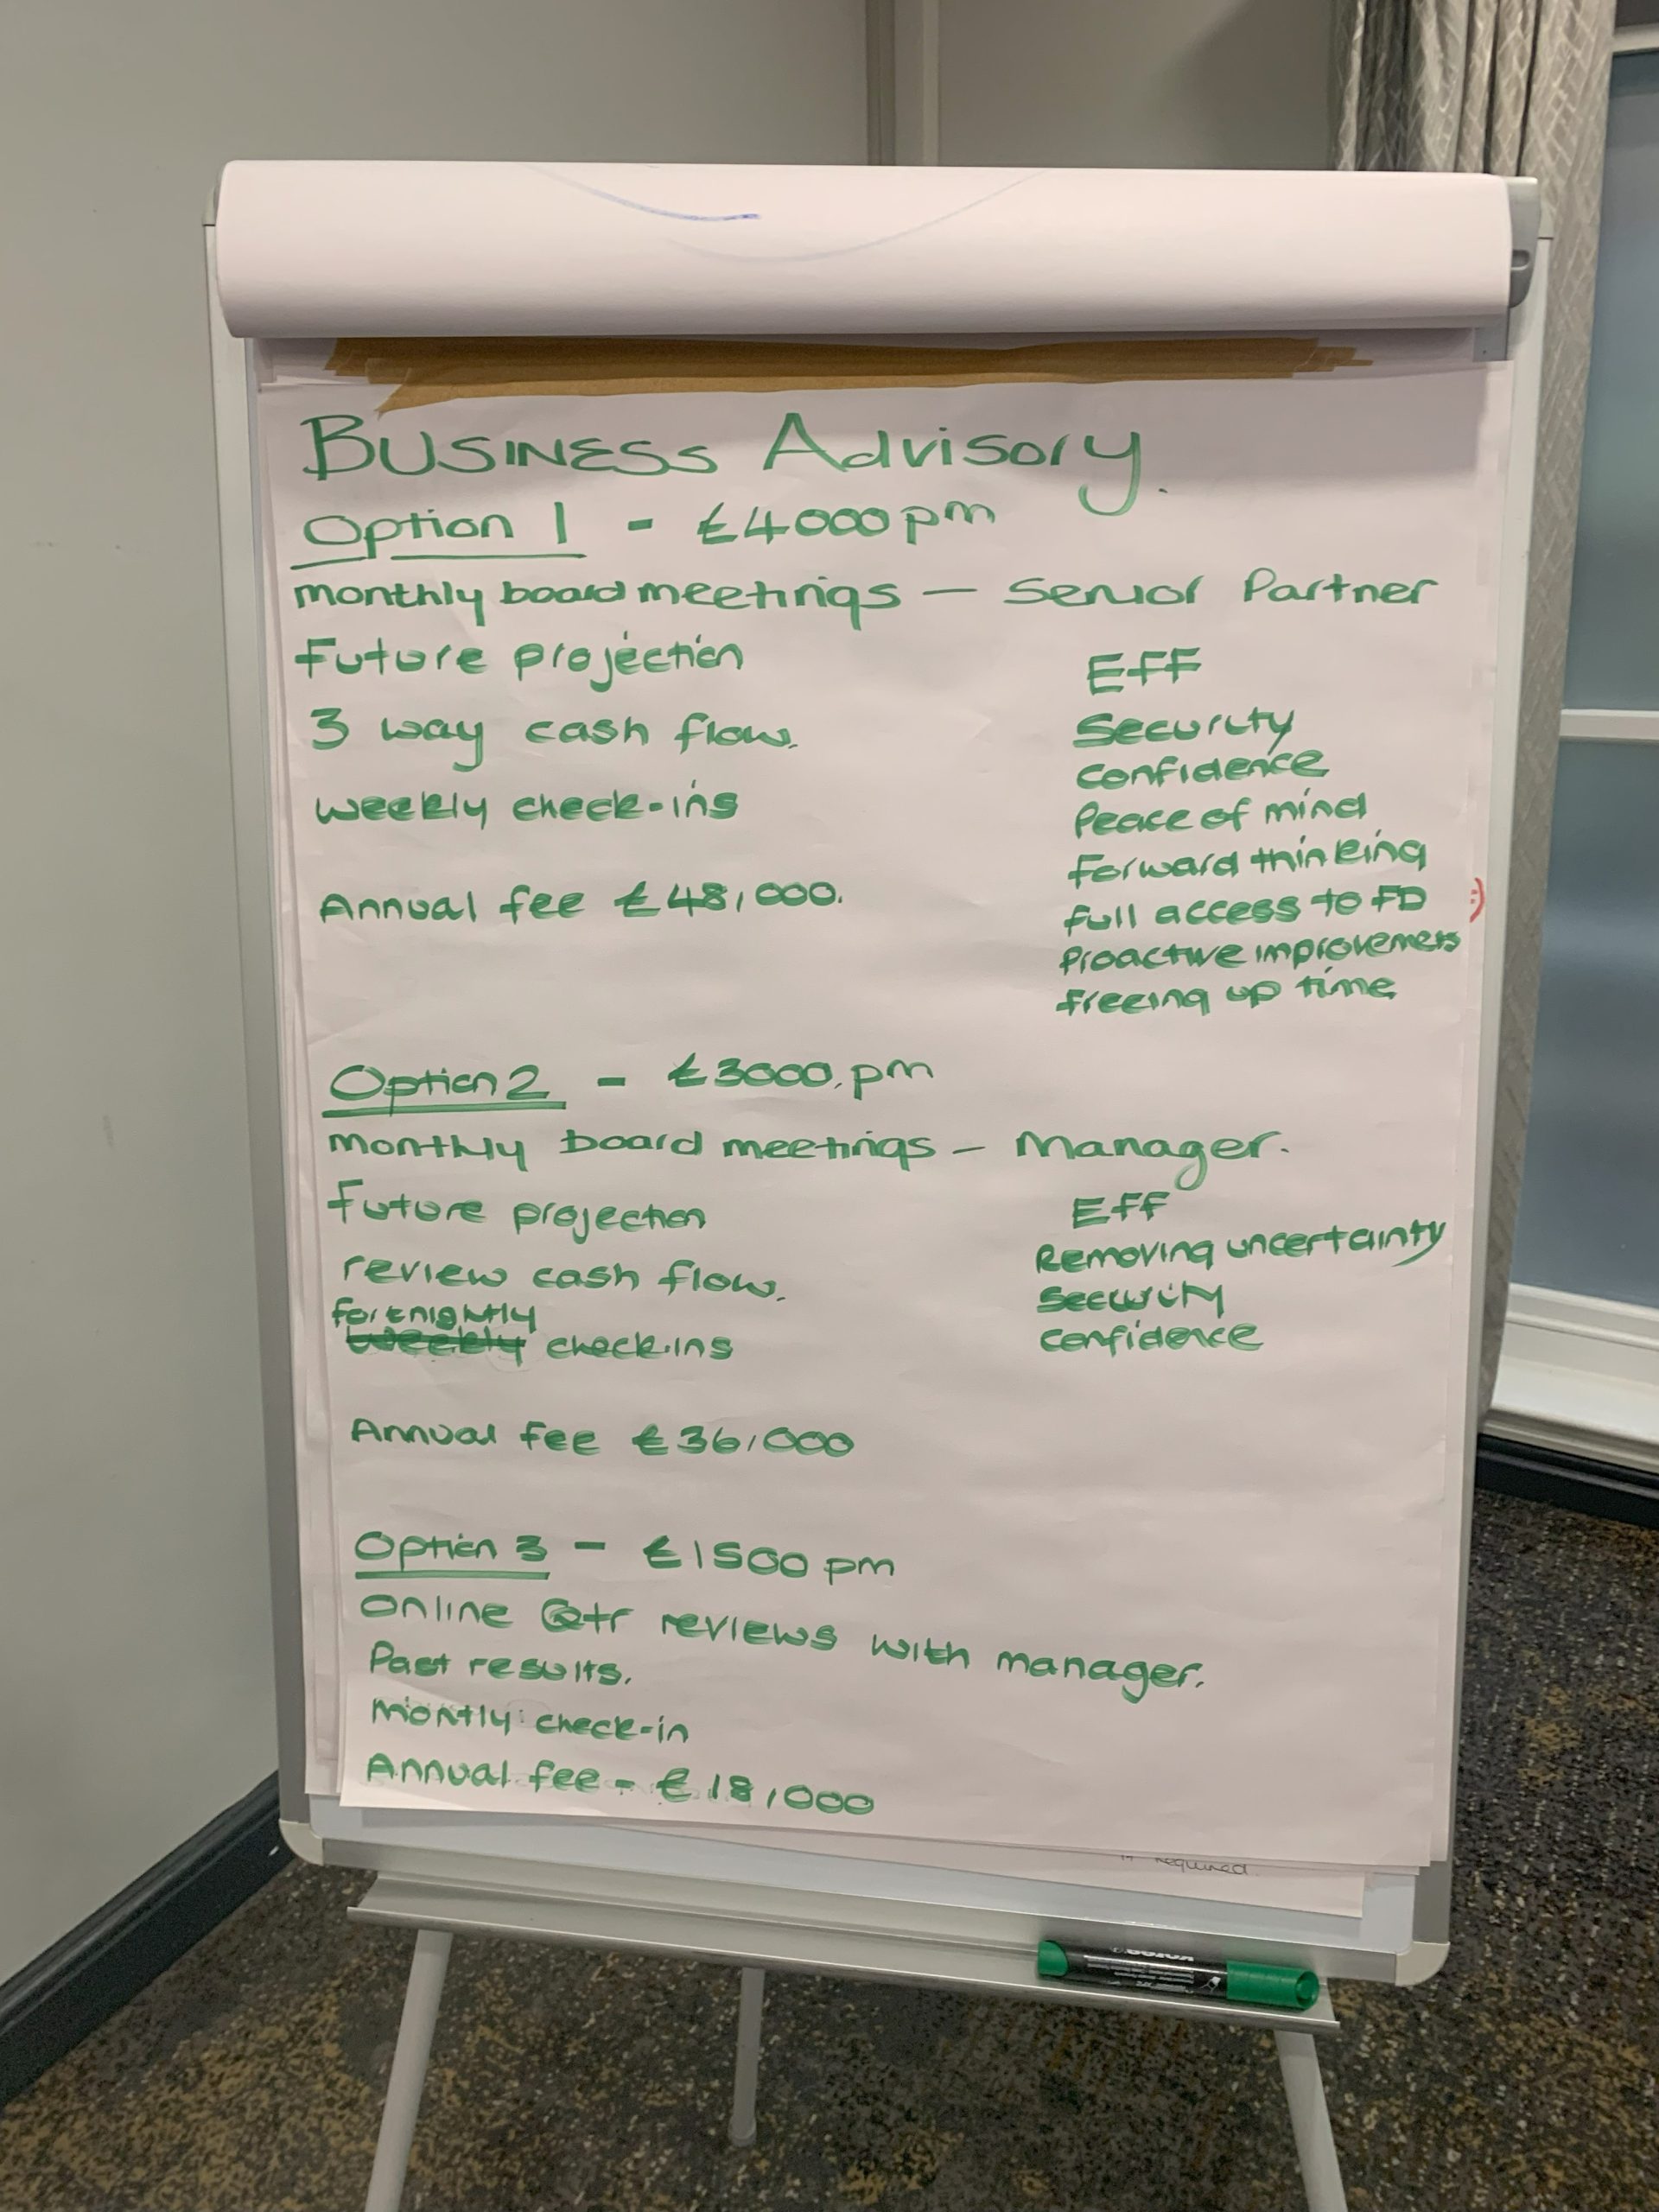 BUSINESS Advisory.
Option 1 - £4000 pm
monthly board meetings - Senior Partner
Future projection
3 way cash flow.
weekly check-ins
Annual fee £48,000.
EFF
Security
confidence
Peace of mind
Forward thinking
full access to FD :)
Proactive improvemets
freeing up time
Option 2 - £3000. pm
Monthly board meetings - Manager.
Future projection
review cash flow.
fortnightly
weekly check-ins
Annual fee £36,000
EFF
Removing uncertainty
Security
confidence
Option 3 - £1500 pm
Online Qtr reviews with manager.
Past results.
Montly check-in
Annual fee - £18,000
required.